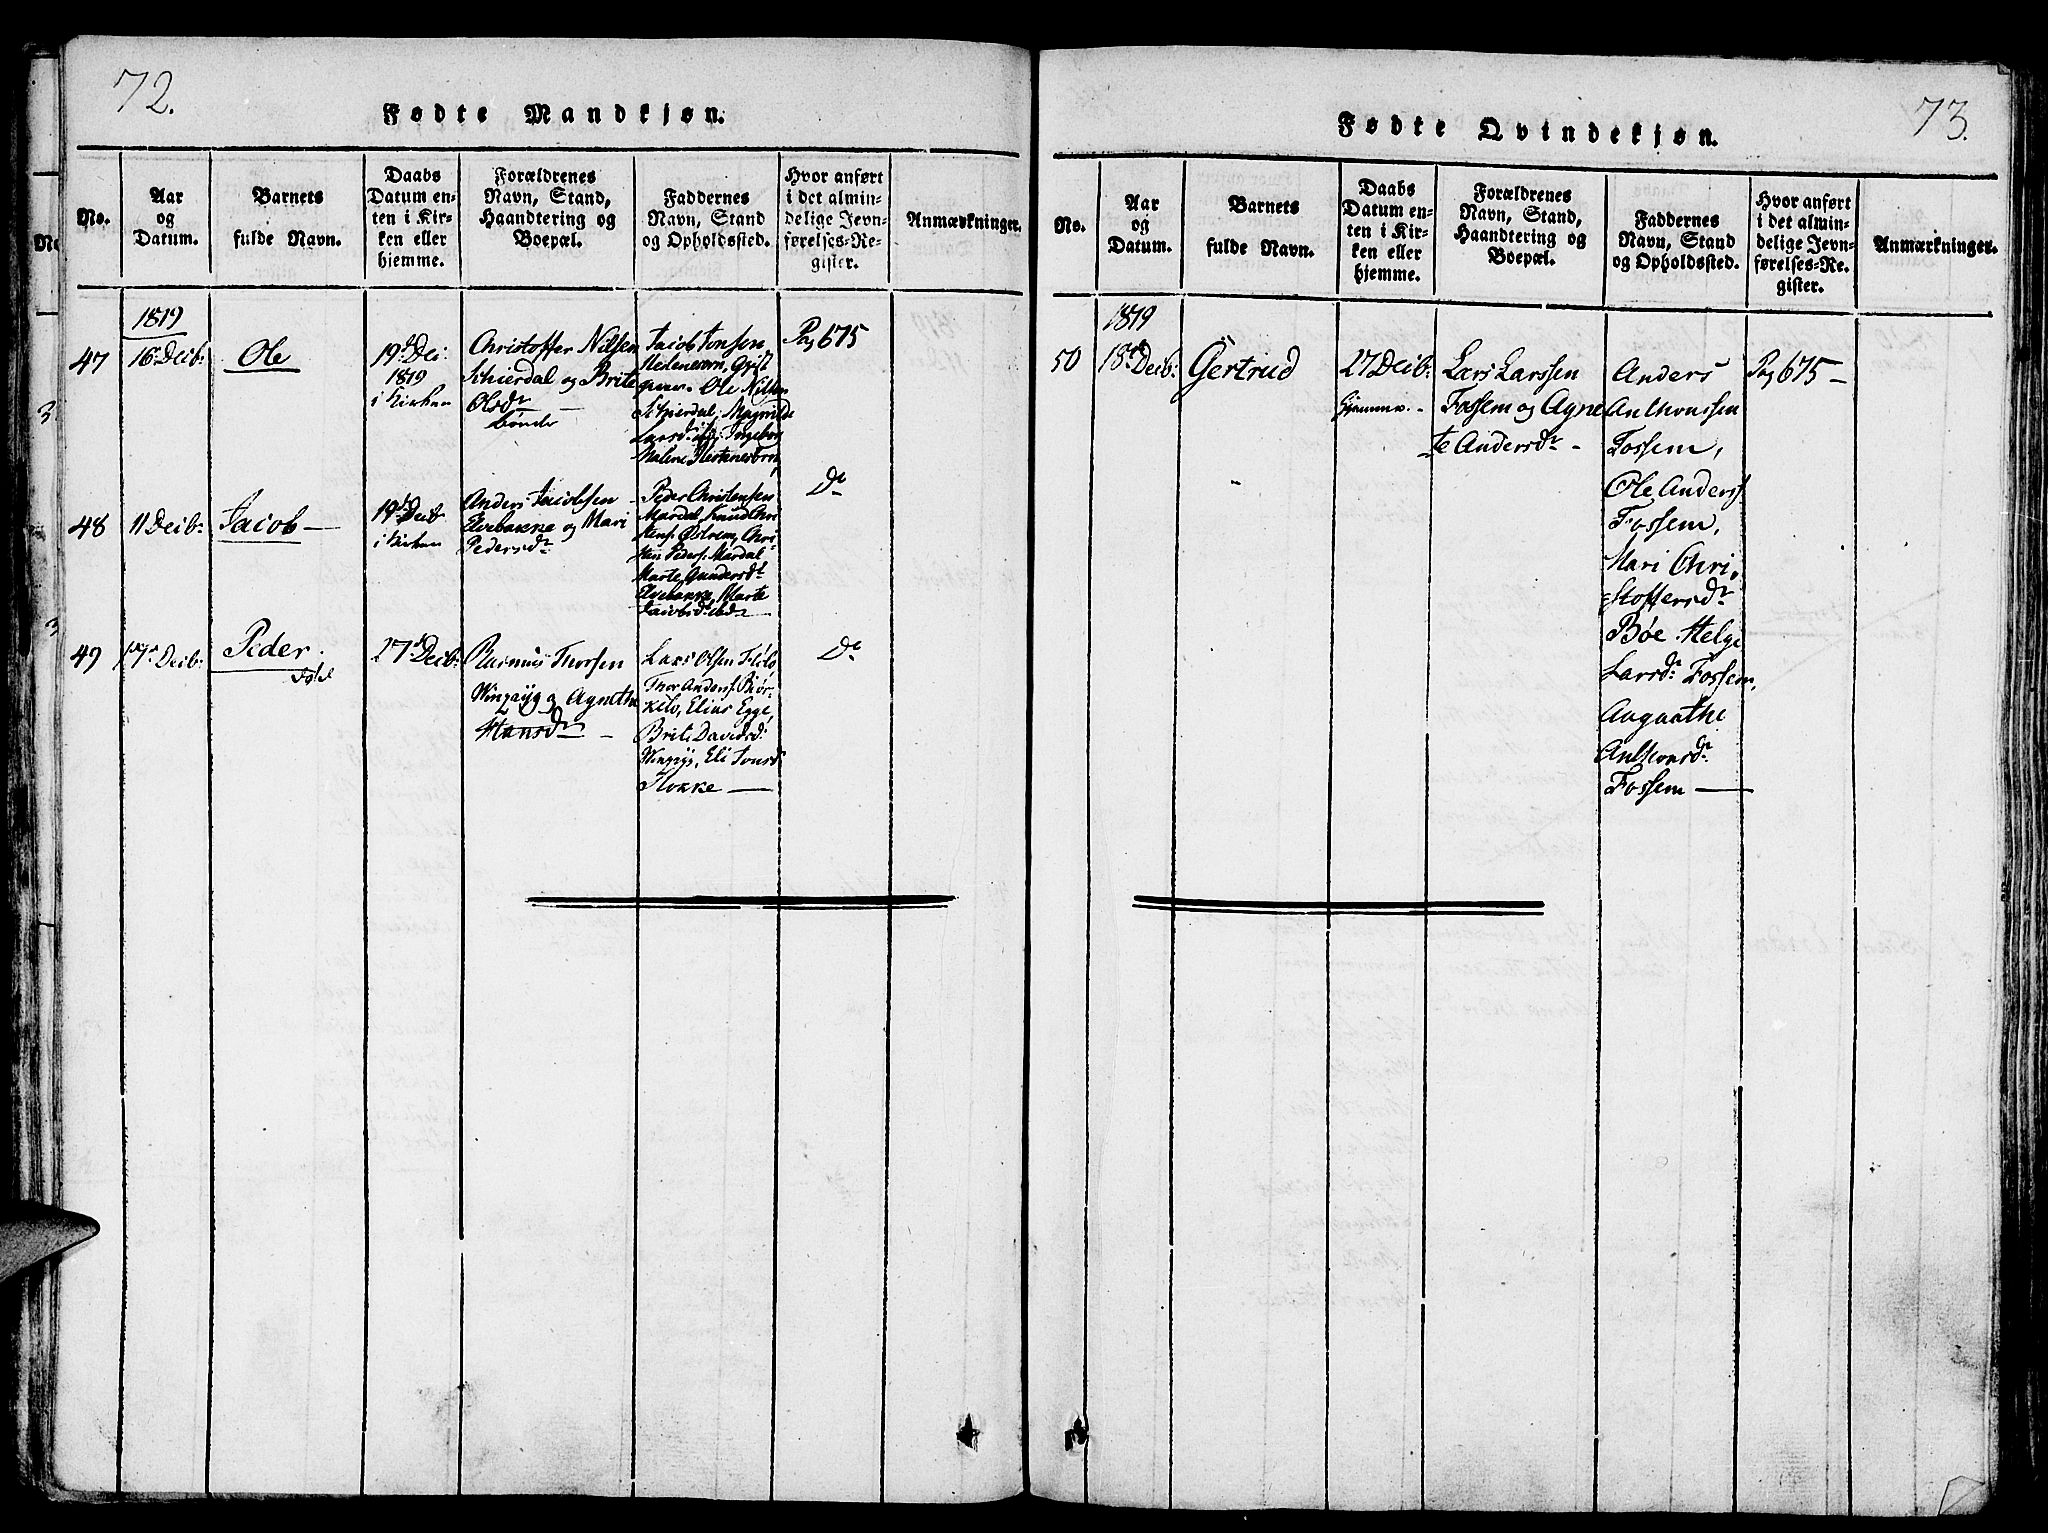 72.
Fødte Mandkjøn.
No.
Aar
og
Datum.
Barnets
fulde Navn.
Daabs
Datum en-
ten i Kir-
ken eller
hjemme.
Forældrenes
Navn, Stand,
Haandtering og
Boepæl.
Faddernes
Navn, Stand
og Opholdssted.
Hvor anført
i det almin-
delige Jevn-
førelses-Re-
gister.
Anmærkninger.
1819
47
16 Decb:
Ole
19d Dec:
1819
i Kirken
Christoffer Nilsen
Schierdal og Brite
Olsdr
bønder
Jacob Jonsen
Ole Nilsen
Schierdal, Magnilde
Larsdr ibd: Ingebor
Malene
Pag 675
48
11 Decb:
Jacob —
19d Decb
i Kirken
Anders Jacobsen
Elvebakke og Mari
Pedersdr
Peder Christensen
Mardal, Knud Chri
stens: Østrem, Chri
sten Peders: Mardal
Marte Gundersdr
Elvebakke, Marte
Jacobsdr ibd —
Do
49
17de Decb:
Peder.
27d Decb:
Rasmus Thorsen
og Agnethe
Hansdr —
Lars Olsen
Thor Anders: Biør-
kelo, Elius Egge,
Brite Davidsd:
Eli Jonsd
Flokke —
Do
73.
Fødte Qvindekjøn.
No.
Aar
og
Datum.
Barnets
fulde Navn.
Daabs
Datum en-
ten i Kir-
ken eller
hjemme.
Forældrenes
Navn, Stand,
Haandtering og
Boepæl.
Faddernes
Navn, Stand
og Opholdssted.
Hvor anført
i det almin-
delige Jevn-
førelses-Re-
gister.
Anmærkninger.
1819
50
18de Decb:
Gertrud
27 Decb:
Hjemme. -
Lars Larssen
Fossem og Agne
te Andersdr -
Anders
Anthonssen
Fossem,
Ole Anderss
Fossem,
Mari Chri,
stoffersdr
Bøe. Helge
Larsdr Fossem,
Augaathe
Anthonsdr
Fossem —
Pag 675 —